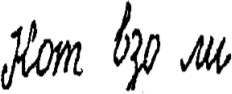 Кот взо ли